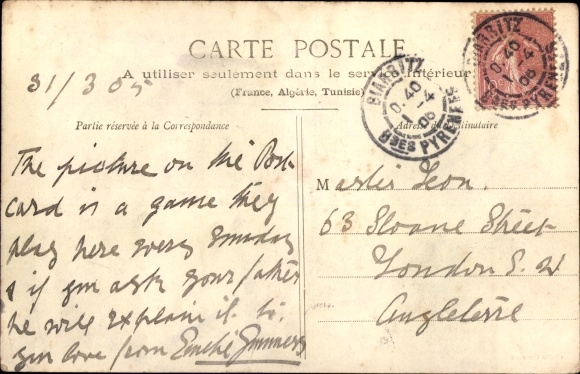 CARTE POSTALE
A utiliser seulement dans le service intérieur
(France, Algérie, Tunisie)
BIARRITZ
0.40
1 -4
06
BSES PYRENEES
BIARRITZ
0.40
1 -4
06
BSES PYRENEES
31/3 05
Partie réservée à la Correspondance
The picture on the Post
card is a game they
play here every Sunday
& if you ask your father
he will explain it to
you love from
Adresse du Destinataire
Master Leon.
63 Sloane Street
London S.W
Angleterre